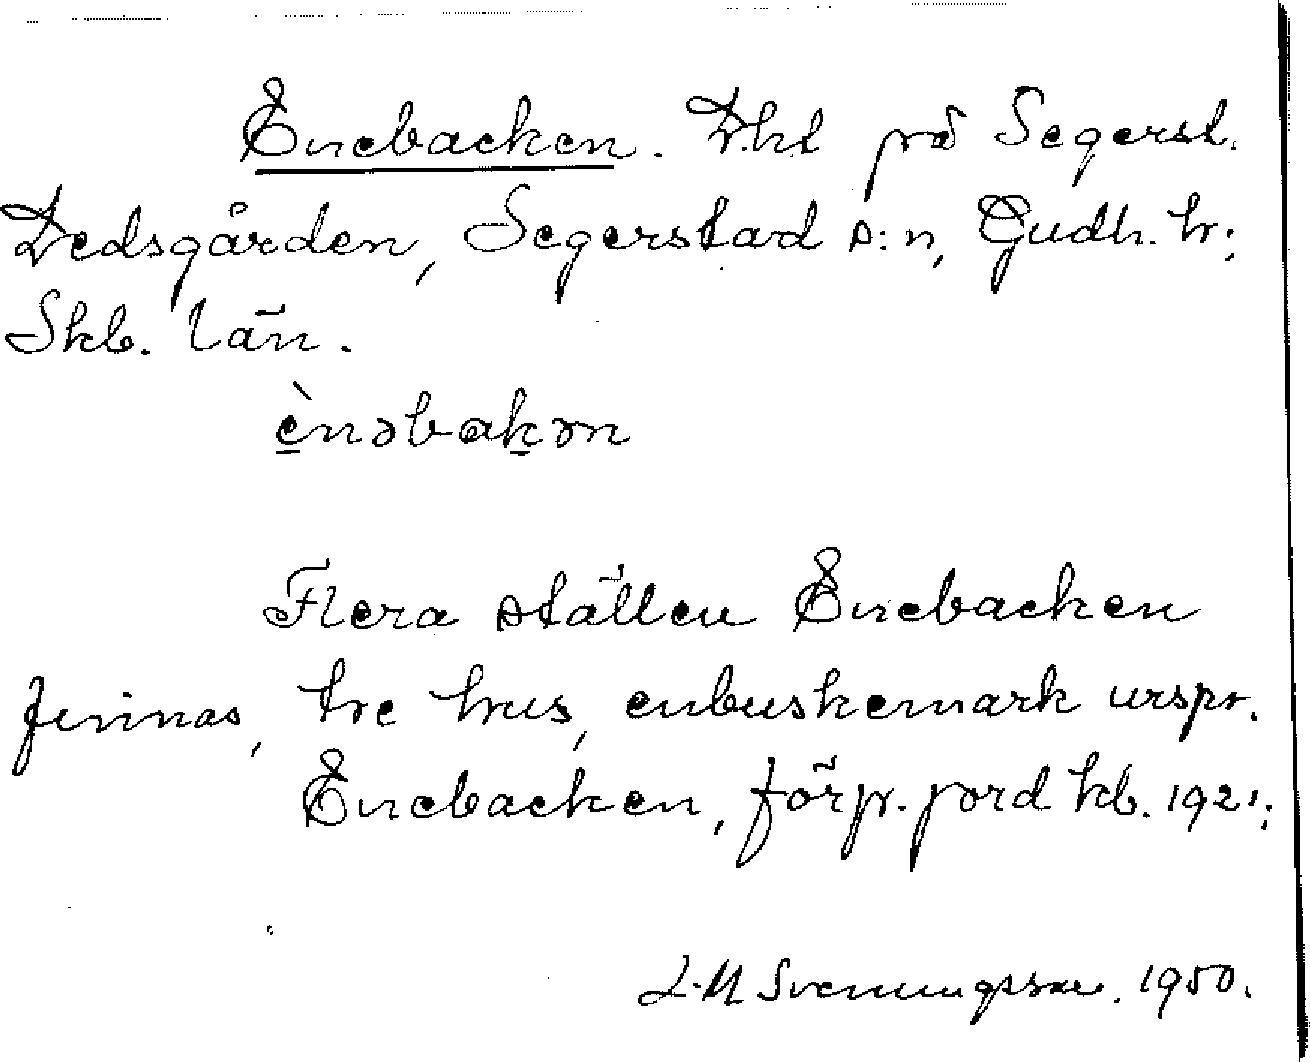 Enebacken. D.h.l på Segerst.
Dedsgården, Segerstad s:n, Gudh. hr;
Skb. län.
ènəbakən
Flera ställen Enebacken
finnas, tre hus, enbuskemark urspr.
Enebacken, förp. jord kb. 1921;
L-M Svenningsson. 1950.